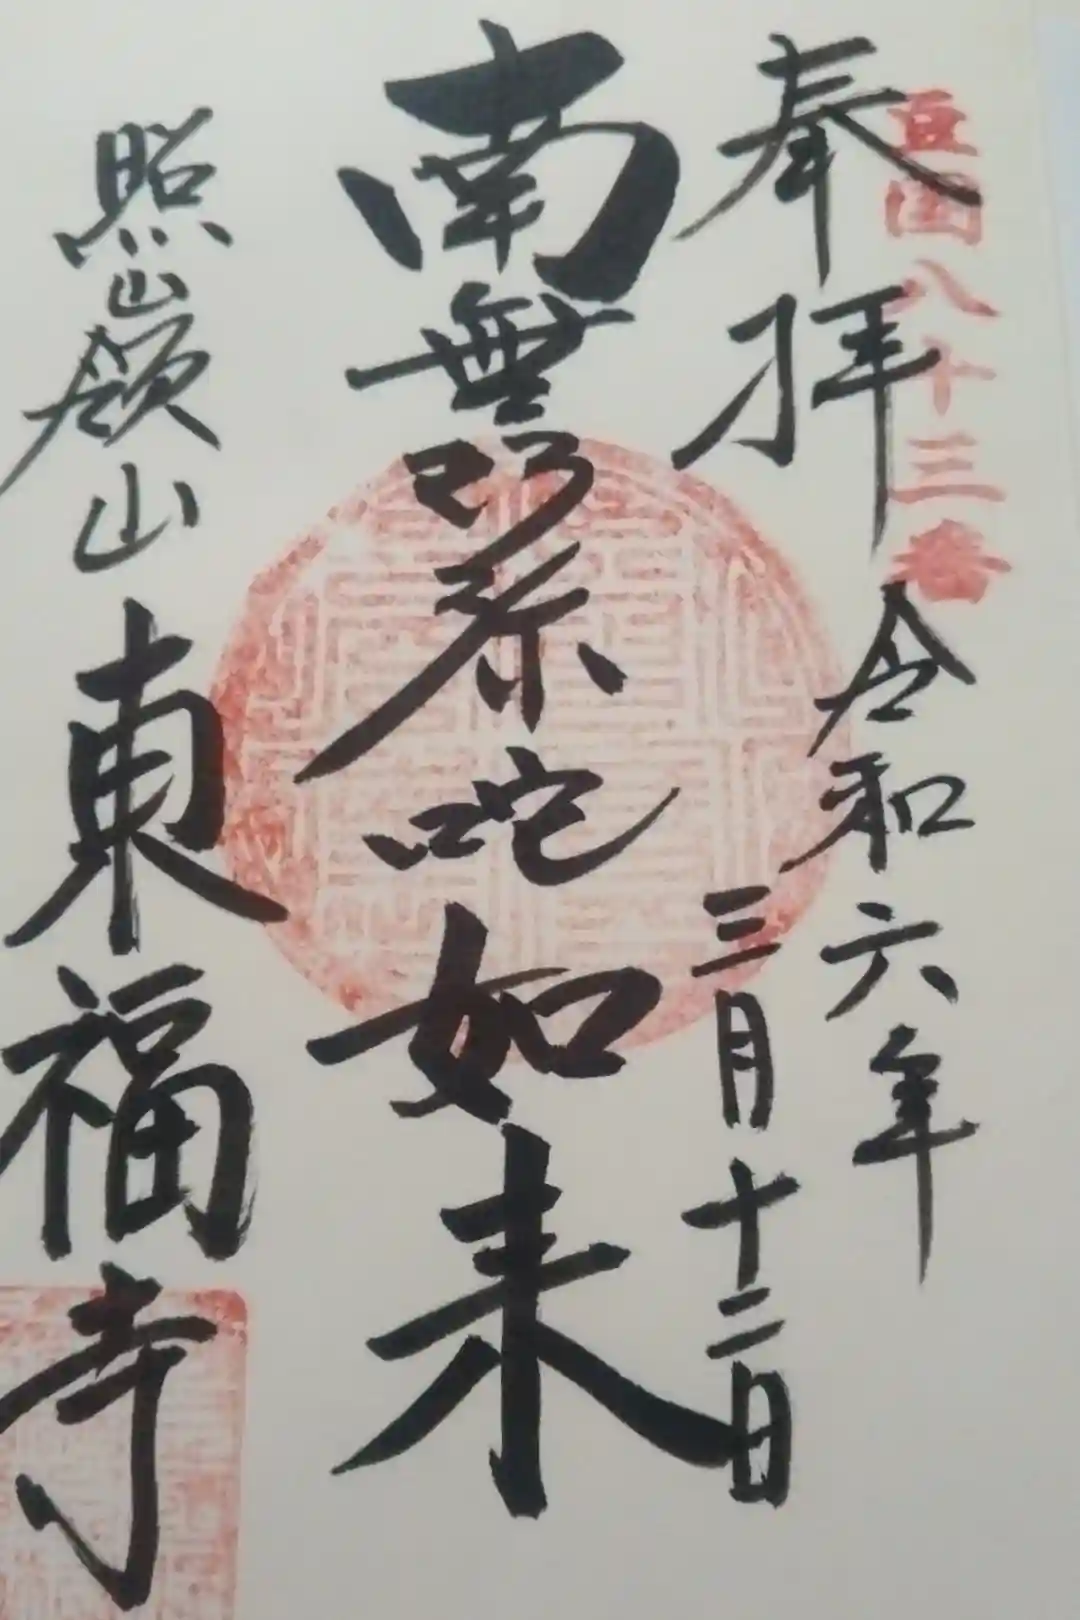 豆国八十三番
奉拝
令和六年
三月十二日
南無阿弥陀如来
照嶺山
東福寺